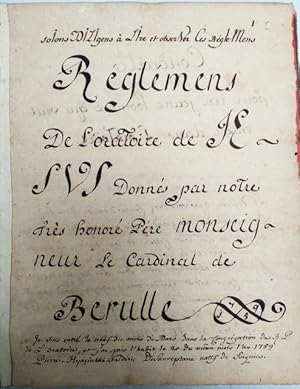 soions DIligens à Lire et observer Ces RégleMens
Réglémens
De L'oratoire de JE-
SVS Donnés par notre
très honoré Père monseig-
neur Le Cardinal de
Berulle
Je suis entré le neuf du mois de Mars dans la Congrégation des
de L'oratoire, et j'ai pris l'habit le du même mois l'an 1789
Pierre Hyacinthe natif de